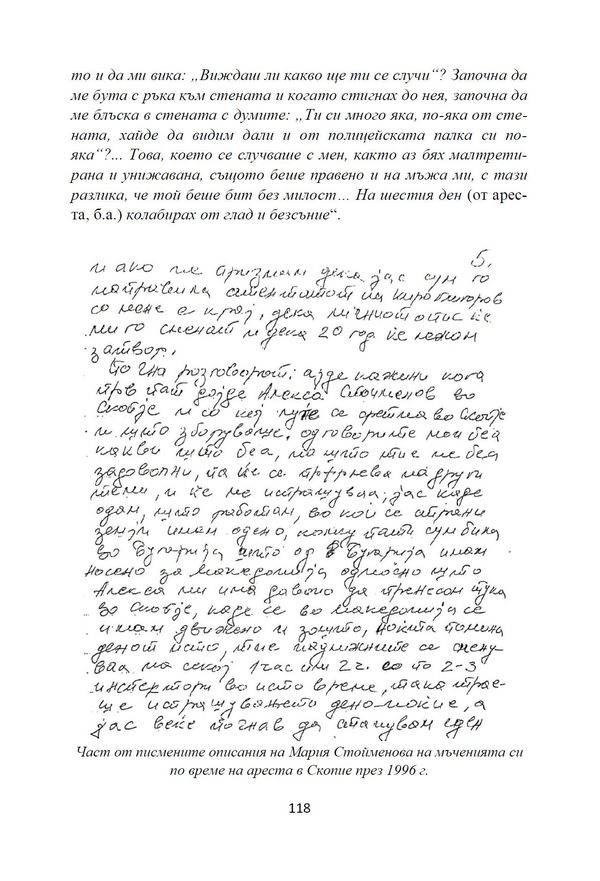 то и да ми вика: „Виждаш ли какво ще ти се случи“? Започна да
ме бута с ръка към стената и когато стигнах до нея, започна да
ме блъска в стената с думите: „Ти си много яка, по-яка от сте-
ната, хайде да видим дали и от полицейската палка си по-
яка“?... Това, което се случваше с мен, както аз бях малтрети-
рана и унижавана, същото беше правено и на мъжа ми, с тази
разлика, че той беше бит без милост… На шестия ден (от арес-
та, б.а.) колабирах от глад и безсъние“.
5.
и ако не признам дека јас сум го
направила атентатот на Киро Глигоров
со мене е крај, дека личниот опис ќе
ми го сменат и дека 20 год ќе лежам
затвор.
Почна разговорот: ајде кажи ни кога
прв пат дојде Алекса Стоименов во
Скопје и со кој луѓе се сретна во Скопје
и што зборуваше. одговорите мои беа
какви што беа, но што тие не беа
задоволни, па ќе се префрлеа на други
теми, и ќе ме испрашуваа; јас каде
одам, што работам, во кои се странски
земји имам одено, колку пати сум била
во Бугарија што од Бугарија имам
носено за Македонија односно што
Алекса ми има давано да пренесам тука
во Скопје, каде се во Македонија се
имам движено и зошто, ноќта помина
денот исто, тие надлежните се смену
ваа на секој 1 час или 2 ч. со по 2-3
инспектори во исто време, така трае-
ше испрашувањето дено-ноќие, а
јас веќе почнав да станувам еден
Част от писмените описания на Мария Стойменова на мъченията си
по време на ареста в Скопие през 1996 г.
118